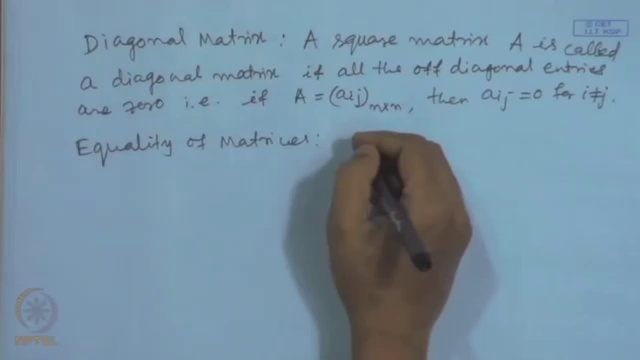 © CET
I.I.T. KGP
Diagonal Matrix : A square matrix A is called
a diagonal matrix if all the off diagonal entries
are zero i.e. if A = (aij)n×n, then aij = 0 for i≠j.
Equality of Matrices :
NPTEL